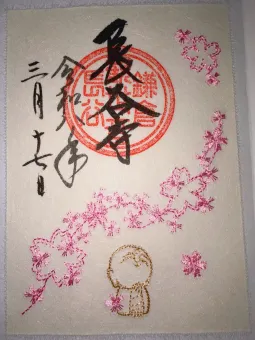 長谷寺
令和六年
三月十七日
鎌倉